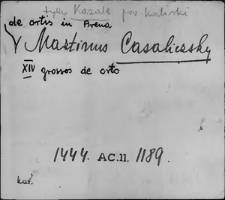 tylko Kazale pow. kaliski
de ortis in Arena
Martinus Casaliczsky
XIV grossos de orto
1444. AC.11. 1189.
kal.